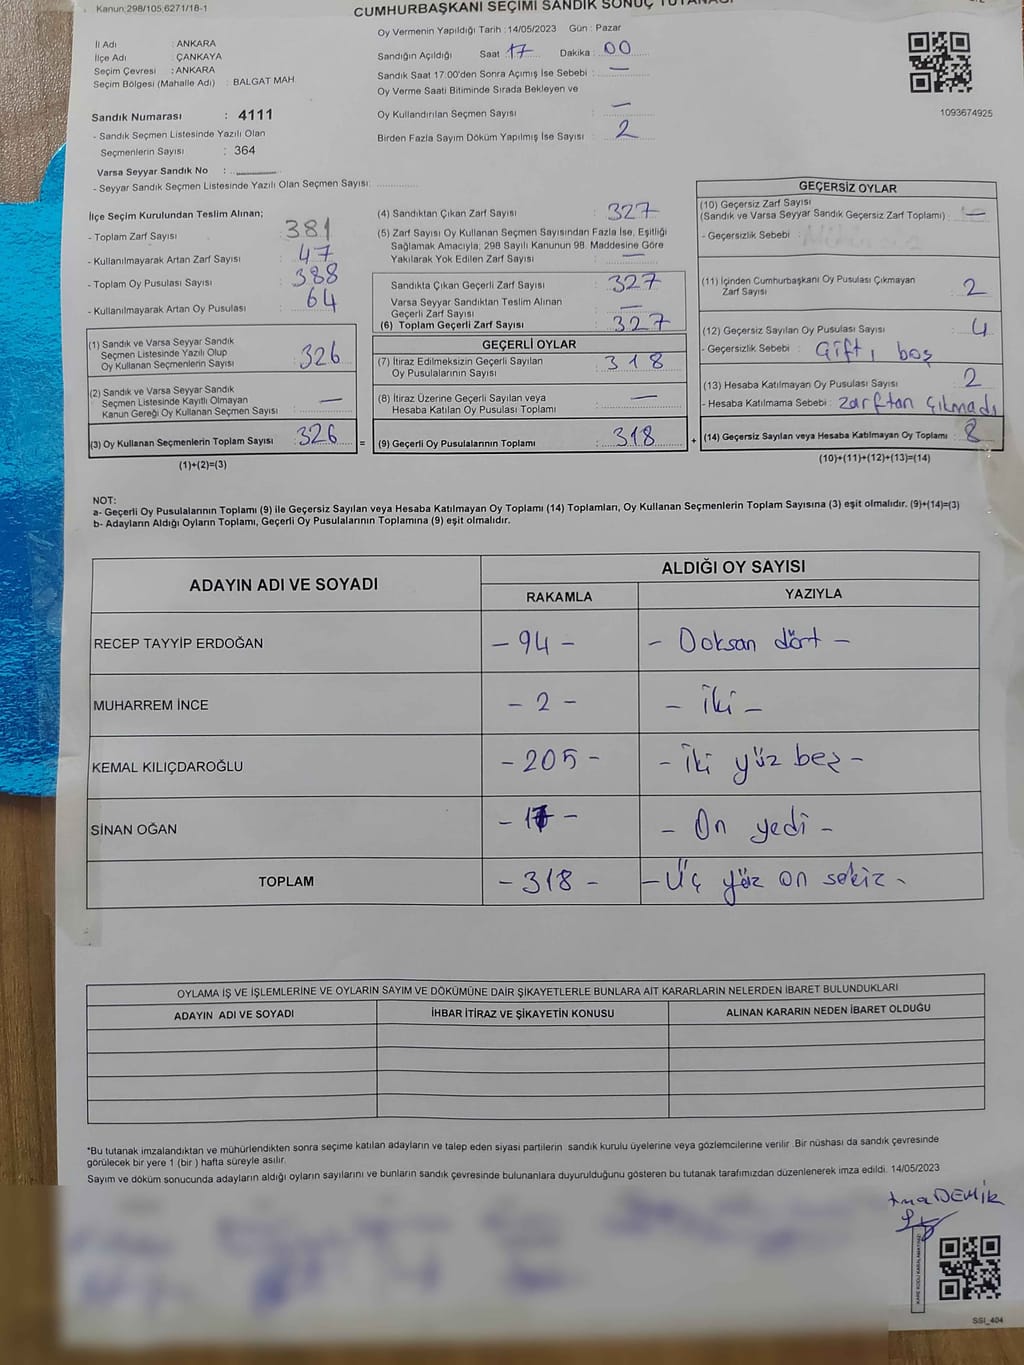 Kanun:298/105,6271/18-1
CUMHURBAŞKANI SEÇİMİ SANDIK SONUÇ TUTANAĞI
İl Adı : ANKARA
İlçe Adı : ÇANKAYA
Seçim Çevresi : ANKARA
Seçim Bölgesi (Mahalle Adı) : BALGAT MAH
Sandık Numarası : 4111
- Sandık Seçmen Listesinde Yazılı Olan
Seçmenlerin Sayısı : 364
Varsa Seyyar Sandık No :
- Seyyar Sandık Seçmen Listesinde Yazılı Olan Seçmen Sayısı:
Oy Vermenin Yapıldığı Tarih : 14/05/2023 Gün : Pazar
Sandığın Açıldığı Saat : 17 Dakika : 00
Sandık Saat 17:00'den Sonra Açımış İse Sebebi : —
Oy Verme Saati Bitiminde Sırada Bekleyen ve
Oy Kullandırılan Seçmen Sayısı : —
Birden Fazla Sayım Döküm Yapılmış İse Sayısı : 2
1093674925
İlçe Seçim Kurulundan Teslim Alınan;
- Toplam Zarf Sayısı : 381
- Kullanılmayarak Artan Zarf Sayısı : 47
- Toplam Oy Pusulası Sayısı : 388
- Kullanılmayarak Artan Oy Pusulası : 64
(1) Sandık ve Varsa Seyyar Sandık
Seçmen Listesinde Yazılı Olup
Oy Kullanan Seçmenlerin Sayısı : 326
(2) Sandık ve Varsa Seyyar Sandık
Seçmen Listesinde Kayıtlı Olmayan
Kanun Gereği Oy Kullanan Seçmen Sayısı : —
(3) Oy Kullanan Seçmenlerin Toplam Sayısı : 326 =
(1)+(2)=(3)
(4) Sandıktan Çıkan Zarf Sayısı : 327
(5) Zarf Sayısı Oy Kullanan Seçmen Sayısından Fazla İse, Eşitliği
Sağlamak Amacıyla; 298 Sayılı Kanunun 98. Maddesine Göre
Yakılarak Yok Edilen Zarf Sayısı : —
Sandıkta Çıkan Geçerli Zarf Sayısı : 327
Varsa Seyyar Sandıktan Teslim Alınan
Geçerli Zarf Sayısı : —
(6) Toplam Geçerli Zarf Sayısı : 327
GEÇERLİ OYLAR
(7) İtiraz Edilmeksizin Geçerli Sayılan
Oy Pusulalarının Sayısı : 318
(8) İtiraz Üzerine Geçerli Sayılan veya
Hesaba Katılan Oy Pusulası Toplamı : —
(9) Geçerli Oy Pusulalarının Toplamı : 318 +
GEÇERSİZ OYLAR
(10) Geçersiz Zarf Sayısı
(Sandık ve Varsa Seyyar Sandık Geçersiz Zarf Toplamı) : —
- Geçersizlik Sebebi :
(11) İçinden Cumhurbaşkanı Oy Pusulası Çıkmayan
Zarf Sayısı : 2
(12) Geçersiz Sayılan Oy Pusulası Sayısı : 4
- Geçersizlik Sebebi : Çift, boş
(13) Hesaba Katılmayan Oy Pusulası Sayısı : 2
- Hesaba Katılmama Sebebi : zarftan çıkmadı
(14) Geçersiz Sayılan veya Hesaba Katılmayan Oy Toplamı : 8
(10)+(11)+(12)+(13)=(14)
NOT:
a- Geçerli Oy Pusulalarının Toplamı (9) ile Geçersiz Sayılan veya Hesaba Katılmayan Oy Toplamı (14) Toplamları, Oy Kullanan Seçmenlerin Toplam Sayısına (3) eşit olmalıdır. (9)+(14)=(3)
b- Adayların Aldığı Oyların Toplamı, Geçerli Oy Pusulalarının Toplamına (9) eşit olmalıdır.
ADAYIN ADI VE SOYADI
ALDIĞI OY SAYISI
RAKAMLA YAZIYLA
RECEP TAYYİP ERDOĞAN - 94 - - Doksan dört -
MUHARREM İNCE - 2 - - İki -
KEMAL KILIÇDAROĞLU - 205 - - İki yüz beş -
SİNAN OĞAN - 17 - - On yedi -
TOPLAM - 318 - - Üç yüz on sekiz -
OYLAMA İŞ VE İŞLEMLERİNE VE OYLARIN SAYIM VE DÖKÜMÜNE DAİR ŞİKAYETLERLE BUNLARA AİT KARARLARIN NELERDEN İBARET BULUNDUKLARI
ADAYIN ADI VE SOYADI İHBAR İTİRAZ VE ŞİKAYETİN KONUSU ALINAN KARARIN NEDEN İBARET OLDUĞU
*Bu tutanak imzalandıktan ve mühürlendikten sonra seçime katılan adayların ve talep eden siyasi partilerin sandık kurulu üyelerine veya gözlemcilerine verilir .Bir nüshası da sandık çevresinde
görülecek bir yere 1 (bir ) hafta süreyle asılır.
Sayım ve döküm sonucunda adayların aldığı oyların sayılarını ve bunların sandık çevresinde bulunanlara duyurulduğunu gösteren bu tutanak tarafımızdan düzenlenerek imza edildi. 14/05/2023
DEMİR
SSI_404